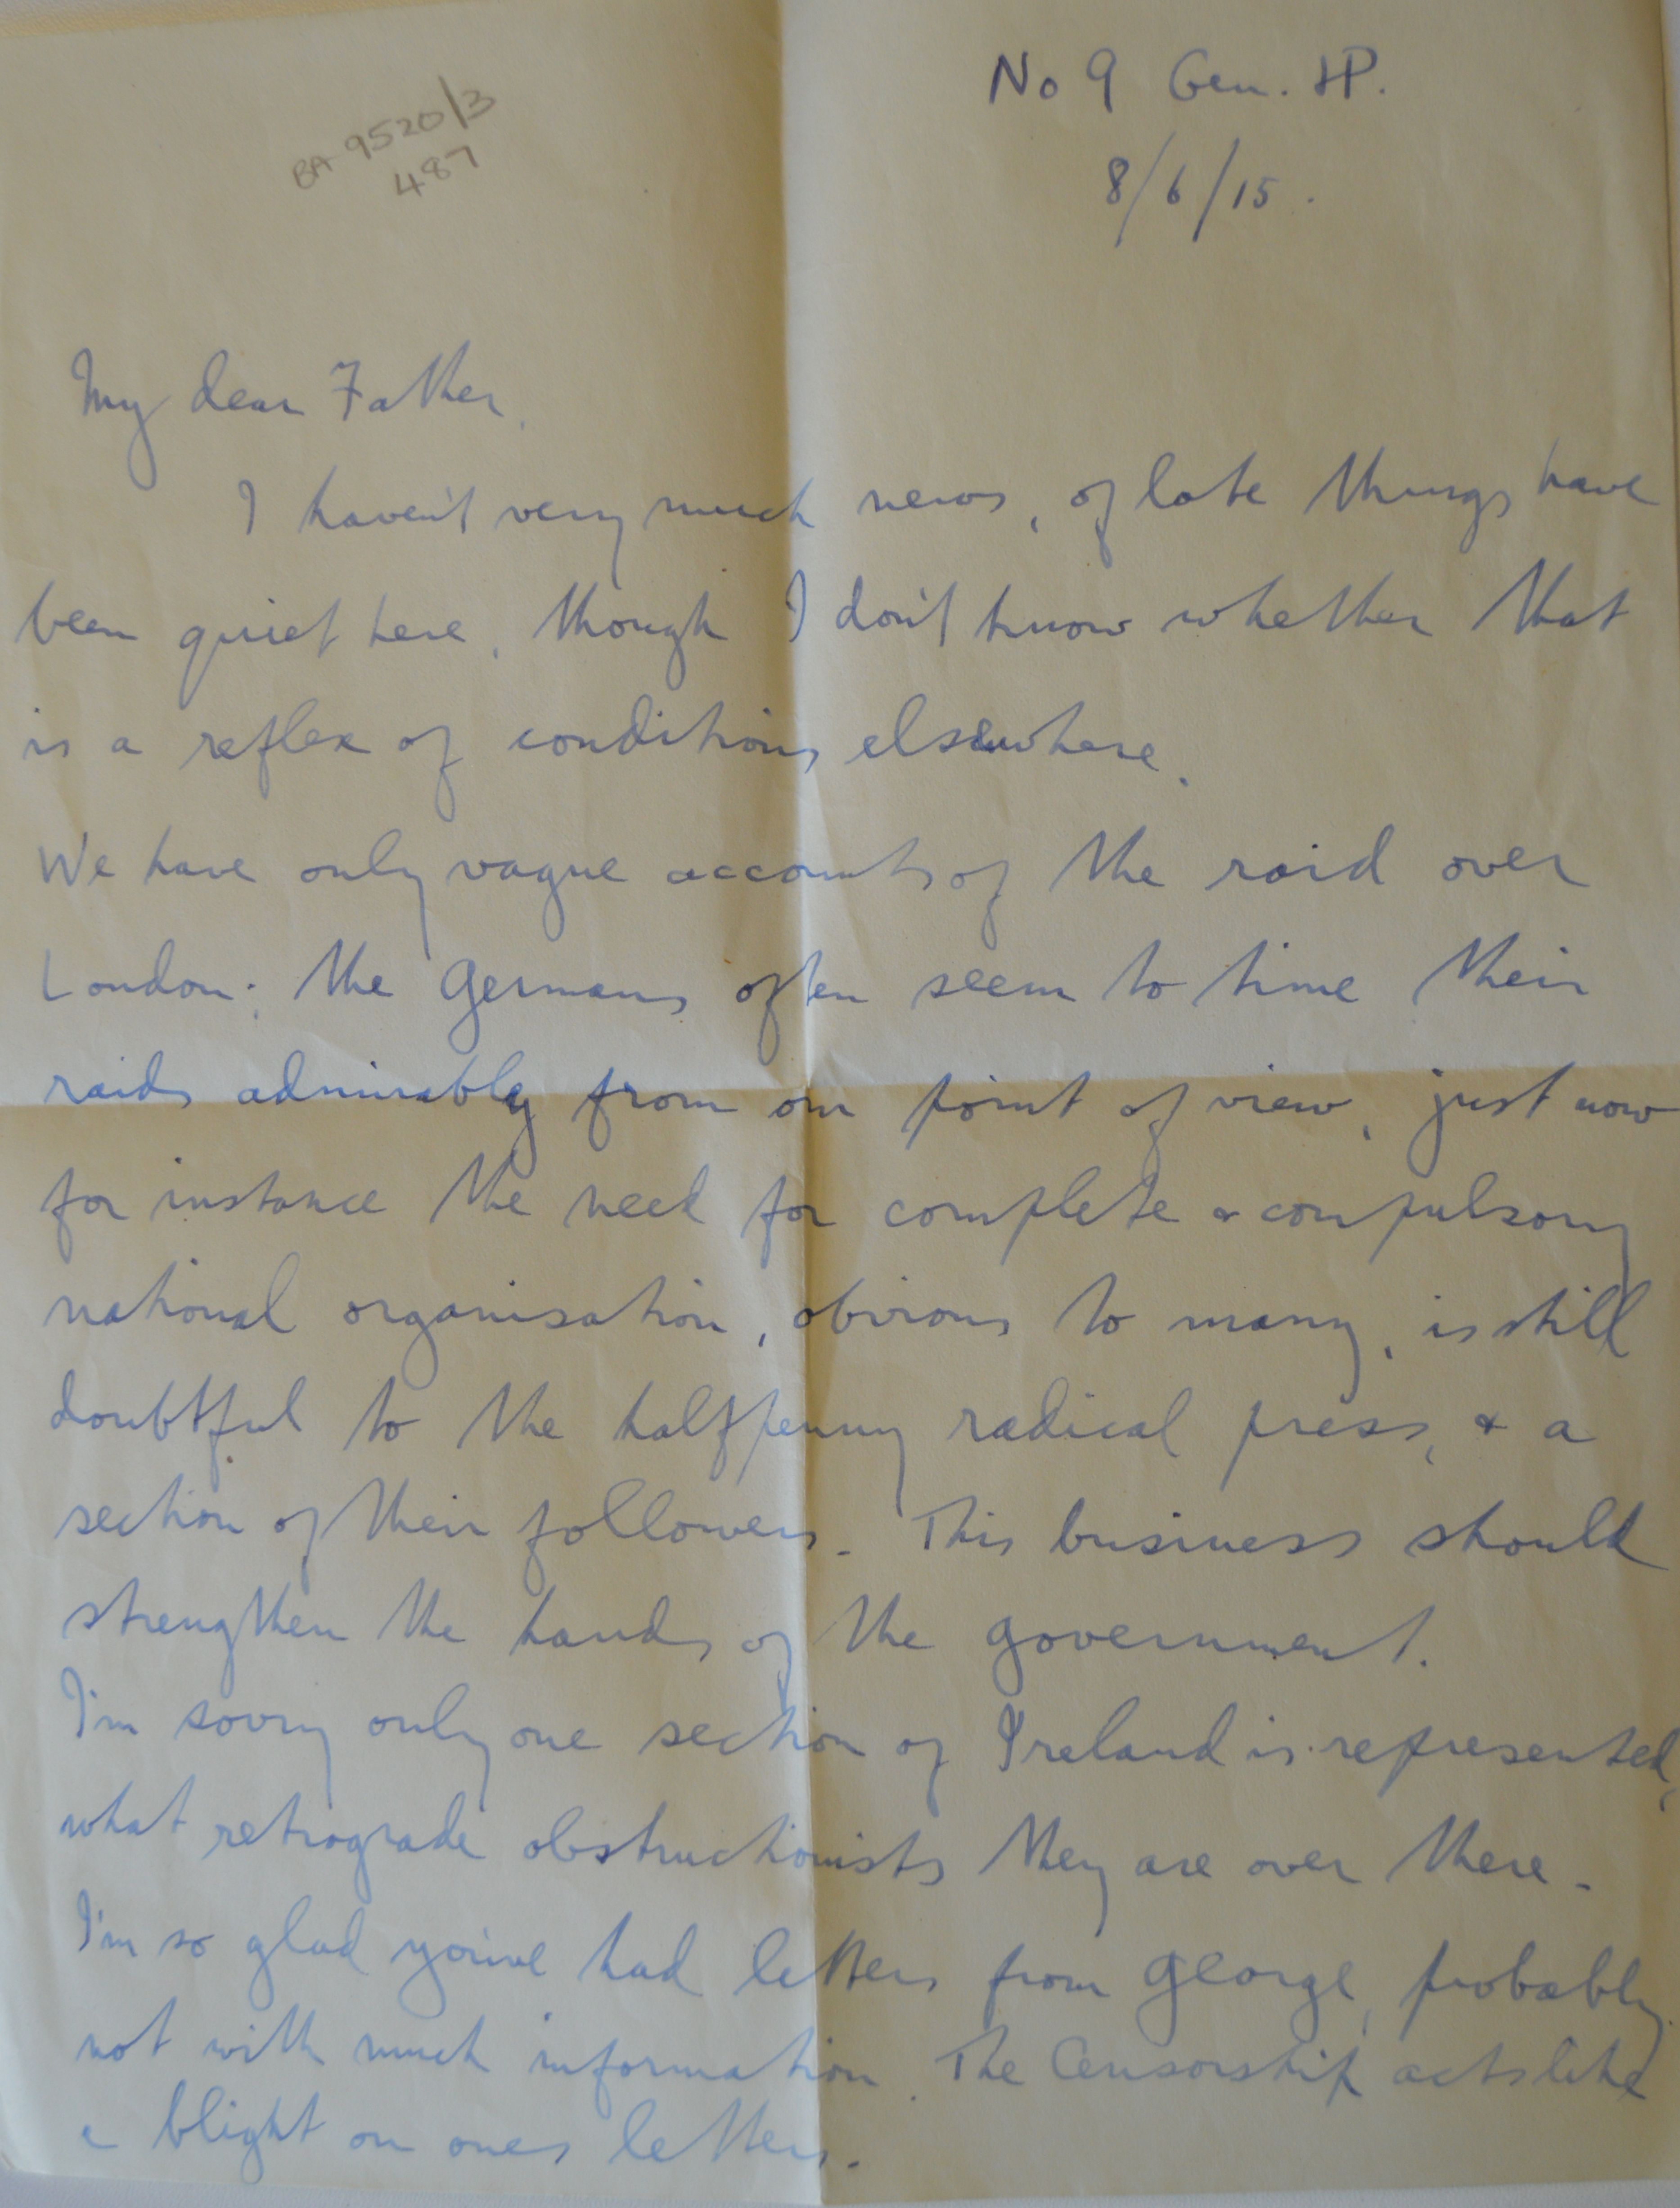 BA 9520/3
487
No 9 Gen. HP.
8/6/15.
My dear Father,
I haven't very much news, of late things have
been quiet here, though I don't know whether that
is a reflex of conditions elsewhere.
We have only vague accounts of the raid over
London; the Germans often seem to time their
raids admirably from our point of view, just now
for instance the need for complete & compulsory
national organisation, obvious to many, is still
doubtful to the halfpenny radical press, & a
section of their followers. This business should
strengthen the hands of the government.
I'm sorry only one section of Ireland is represented,
what retrograde obstructionists they are over there.
I'm so glad you've had letters from George, probably
not with much information. The Censorship acts like
a blight on ones letters.